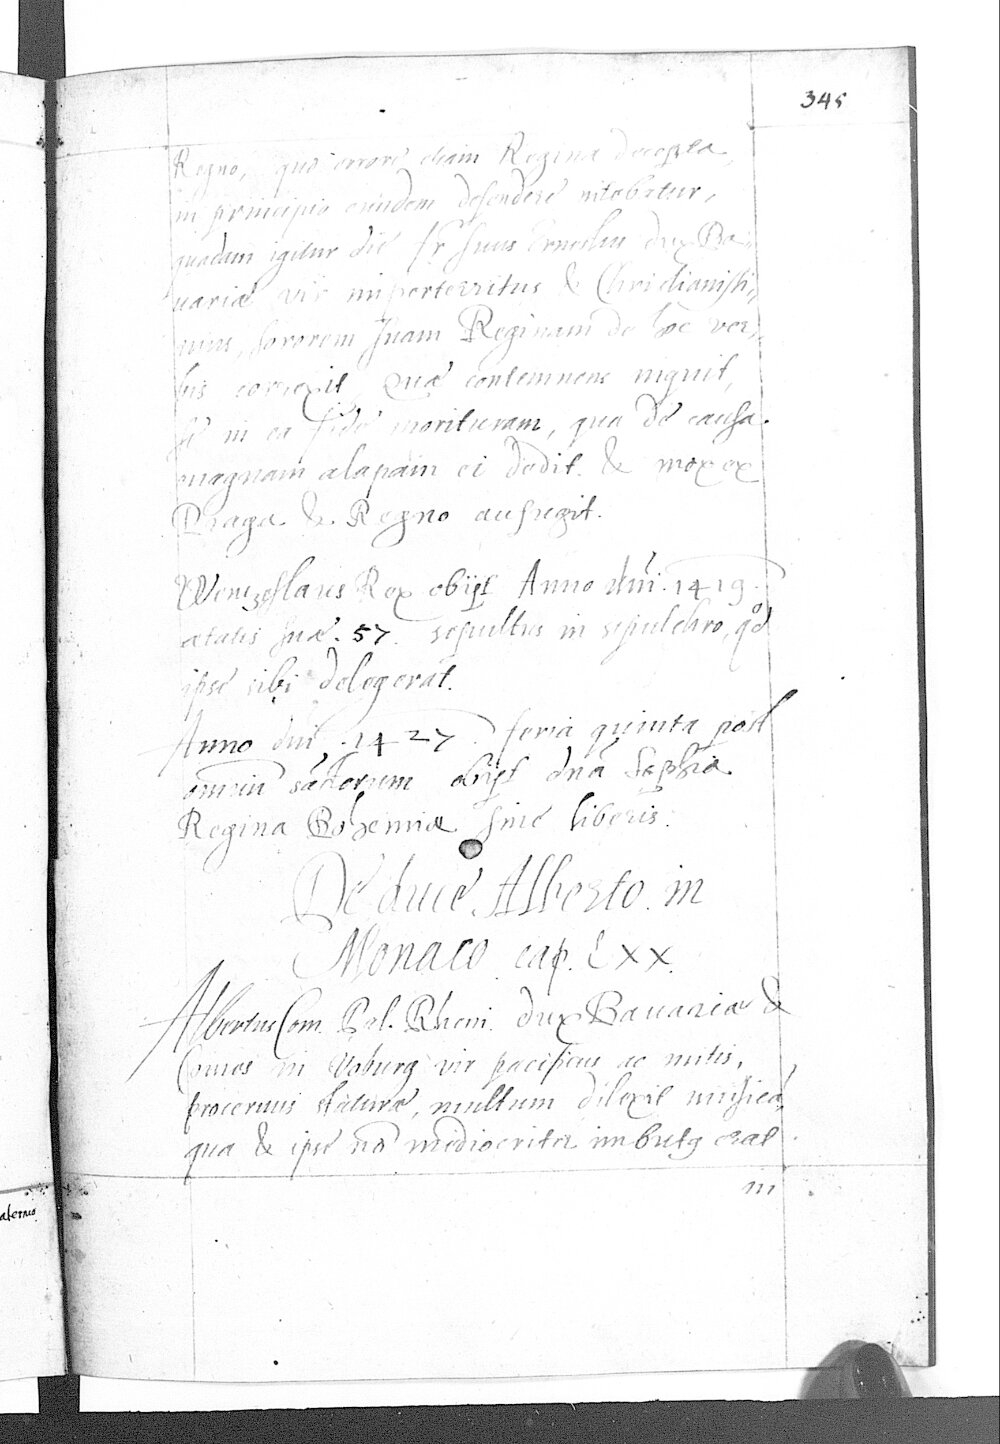 345
Regno, quo errore etiam Regina decepta,
in principio eundem defendere nitebatur,
quadam igitur die fr suus Ernestus dux Ba=
uariæ vir imperterritus & Christianissi=
mus, sororem suam Reginam de hoc ver=
bis correxit, Quæ contemnens inquit,
se in ea fide morituram, qua de causa
magnam alapam ei dedit & mox ex
Praga & Regno aufugit.
Wenzeslaus Rex obijt Anno dni. 1419.
ætatis suæ. 57. sepultus in sepulchro, qd
ipse sibi delegerat.
Anno dni. 1427. feria quinta post
omniū sāctorum obijt dnā Sophia
Regina Bohemiæ sine liberis.
De duce Alberto in
Monaco cap. LXX.
Albertus Com. Pal. Rheni. dux Bauariæ &
Comes in Voburg vir pacificus ac mitis,
procerus staturæ, multum dilexit musicā,
qua & ipse nō mediocriter imbutq erat
in
aternus